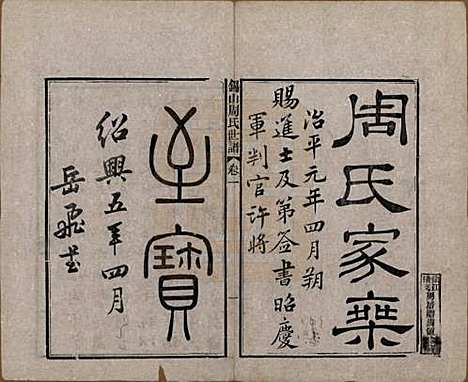 周氏家乘
治平元年四月朔
賜進士及第簽書昭慶
軍判官許將
錫山周氏世譜 卷一 一
至寶
紹興五年四月
岳飛書